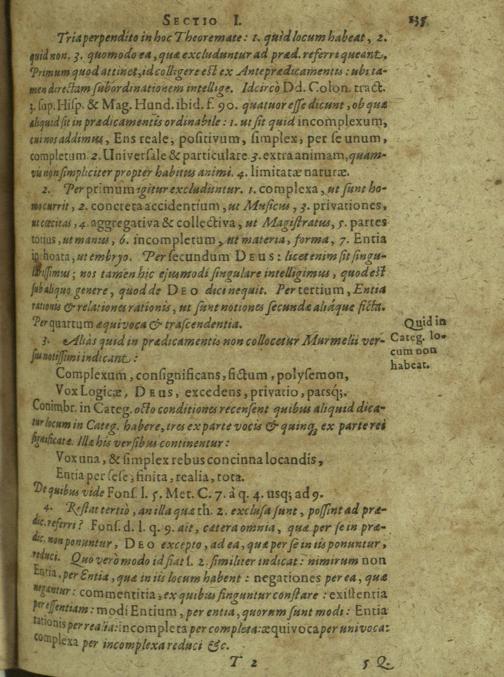 SECTIO I. 235
Tria perpendito in hoc Theoremate: 1. quid locum habeat, 2.
quid non. 3. quomodo ea, quæ excluduntur ad præd. referri queant.
Primum quod attinet, id colligere est ex Antepredicamentis: ubi ta-
men directam subordinationem intellige. Idcircò Dd. Colon. tract.
3. sup. Hisp. & Mag. Hund. ibid. f. 90. quatuor esse dicunt, ob quæ
aliquid sit in prædicamentis ordinabile: 1. ut sit quid incomplexum,
cui nos addimus, Ens reale, positivum, simplex, per se unum,
completum. 2. Universale & particulare 3. extra animam, quam-
vis non simpliciter propter habitus animi. 4. limitatæ naturæ.
2. Per primum igitur excluduntur. 1. complexa, ut sunt ho-
mo currit, 2. concreta accidentium, ut Musicus, 3. privationes,
ut cæcitas, 4. aggregativa & collectiva, ut Magistratus, 5. partes
totius, ut manus, 6. incompletum, ut materia, forma, 7. Entia
inchoata, ut embryo. Per secundum DEUS: licet enim sit singu-
larissimus; nos tamen hic ejusmodi singulare intelligimus, quod est
sub aliquo genere, quod de DEO dici nequit. Per tertium, Entia
rationis & relationes rationis, ut sunt notiones secundæ aliáque ficta.
Per quartum æquivoca & trascendentia.
Quid in
Categ. lo-
cum non
habeat.
3. Aliàs quid in prædicamentis non collocetur Murmelii ver-
sus notissimi indicant:
Complexum, consignificans, fictum, polysemon,
Vox Logicæ, DEUS, excedens, privatio, parsq;.
Conimbr. in Categ. octo conditiones recensent quibus aliquid dica-
tur locum in Categ. habere, tres ex parte vocis & quinq, ex parte rei
significatæ. Illæ his versibus continentur:
Vox una, & simplex rebus concinna locandis,
Entia per sese, finita, realia, tota.
De quibus vide Fons. l. 5. Met. C. 7. à q. 4. usq; ad 9.
4. Restat tertiò, an illa quæ th. 2. exclusa sunt, possint ad præ-
dic. referri? Fons. d. l. q. 9. ait, cætera omnia, quæ per se in præ-
dic. non ponuntur, DEO excepto, ad ea, quæ per se in iis ponuntur,
reduci. Quo verò modo id fiat l. 2. similiter indicat: nimirum non
Entia, per Entia, quæ in iis locum habent: negationes per ea, quæ
negantur: commentitia, ex quibus finguntur constare: existentia
per essentiam: modi Entium, per entia, quorum sunt modi: Entia
rationis per realia: incompleta per completa: æquivoca per univoca:
complexa per incomplexa reduci &c.
T 2 5 Q.